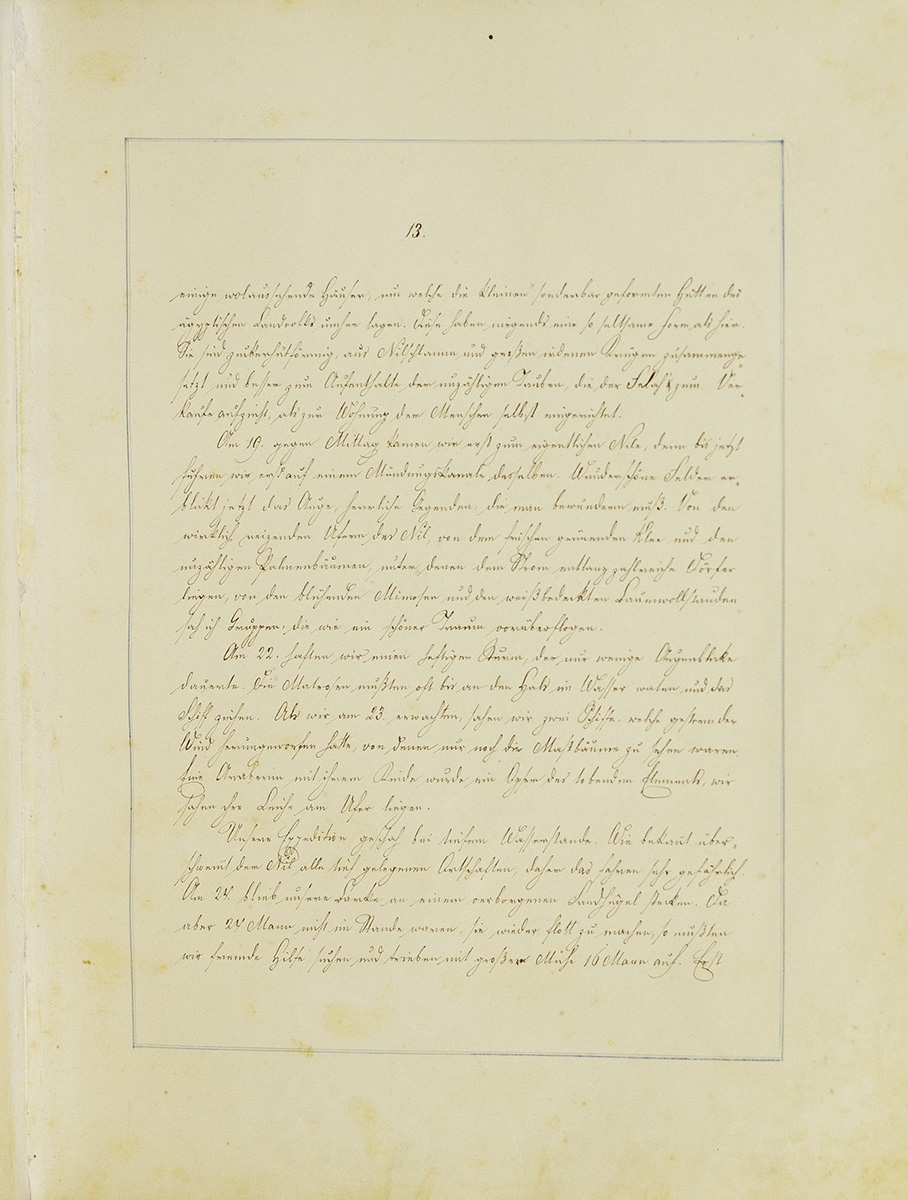 13.
einige wolaussehende Häuser, um welche die kleinen sonderbar geformten Hütten des
ägyptischen Landvolks umher lagen. Diese haben nirgends eine so seltsame Form, als hier.
Sie sind zuckerhutförmig, aus Nilschlamm und großen irdenen Krügen zusammenge-
setzt und besser zum Aufenthalte der unzähligen Tauben, die der Felah zum Ver-
kaufe aufzieht, als zur Wohnung der Menschen selbst eingerichtet.
Am 19. gegen Mittag kamen wir erst zum eigentlichen Nile, denn bis jetzt
fuhren wir erst auf einem Mündungskanale desselben. Wunderschöne Felder er-
blickt jetzt das Auge, herrliche Gegenden, die man bewundern muß. Von den
wirklich reizenden Ufern des Nil, von dem frischen grünenden Klee und den
unzähligen Palmenbäumen, unter denen dem Strom entlang zahlreiche Dörfer
liegen, von den blühenden Mimosen und den weißbedeckten Baumwollstauden
sah ich Gruppen, die wie ein schöner Traum vorüberflogen.
Am 22. hatten wir einen heftigen Sturm, der nur wenige Augenblicke
dauerte. Die Matrosen mußten oft bis an den Hals im Wasser waten und das
Schiff ziehen. Als wir am 23. erwachten, sahen wir zwei Schiffe, welche gestern der
Wind herumgeworfen hatte, von denen nur noch die Mastbäume zu sehen waren.
Eine Araberin mit ihrem Kinde wurde ein Opfer des tobenden Elements, wir
sahen ihre Leiche am Ufer liegen.
Unsere Expedition geschah bei tiefem Wasserstande. Wie bekannt über-
schwemt der Nil alle tief gelegenen Ortschaften, daher das Fahren sehr gefährlich.
Am 24. blieb unsere Barke an einem verborgenen Sandhügel stecken. Da
aber 24 Mann nicht im Stande waren, sie wieder flott zu machen, so mußten
wir fremde Hilfe suchen und trieben mit großer Mühe 16 Mann auf. Erst